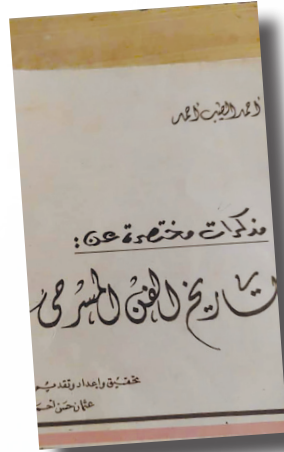 احمد الطيب احمد
مذكرات مختصرة عن:
تاريخ الفن المسرحى
تحقيق واعداد وتقديم
عثمان حسن احمد